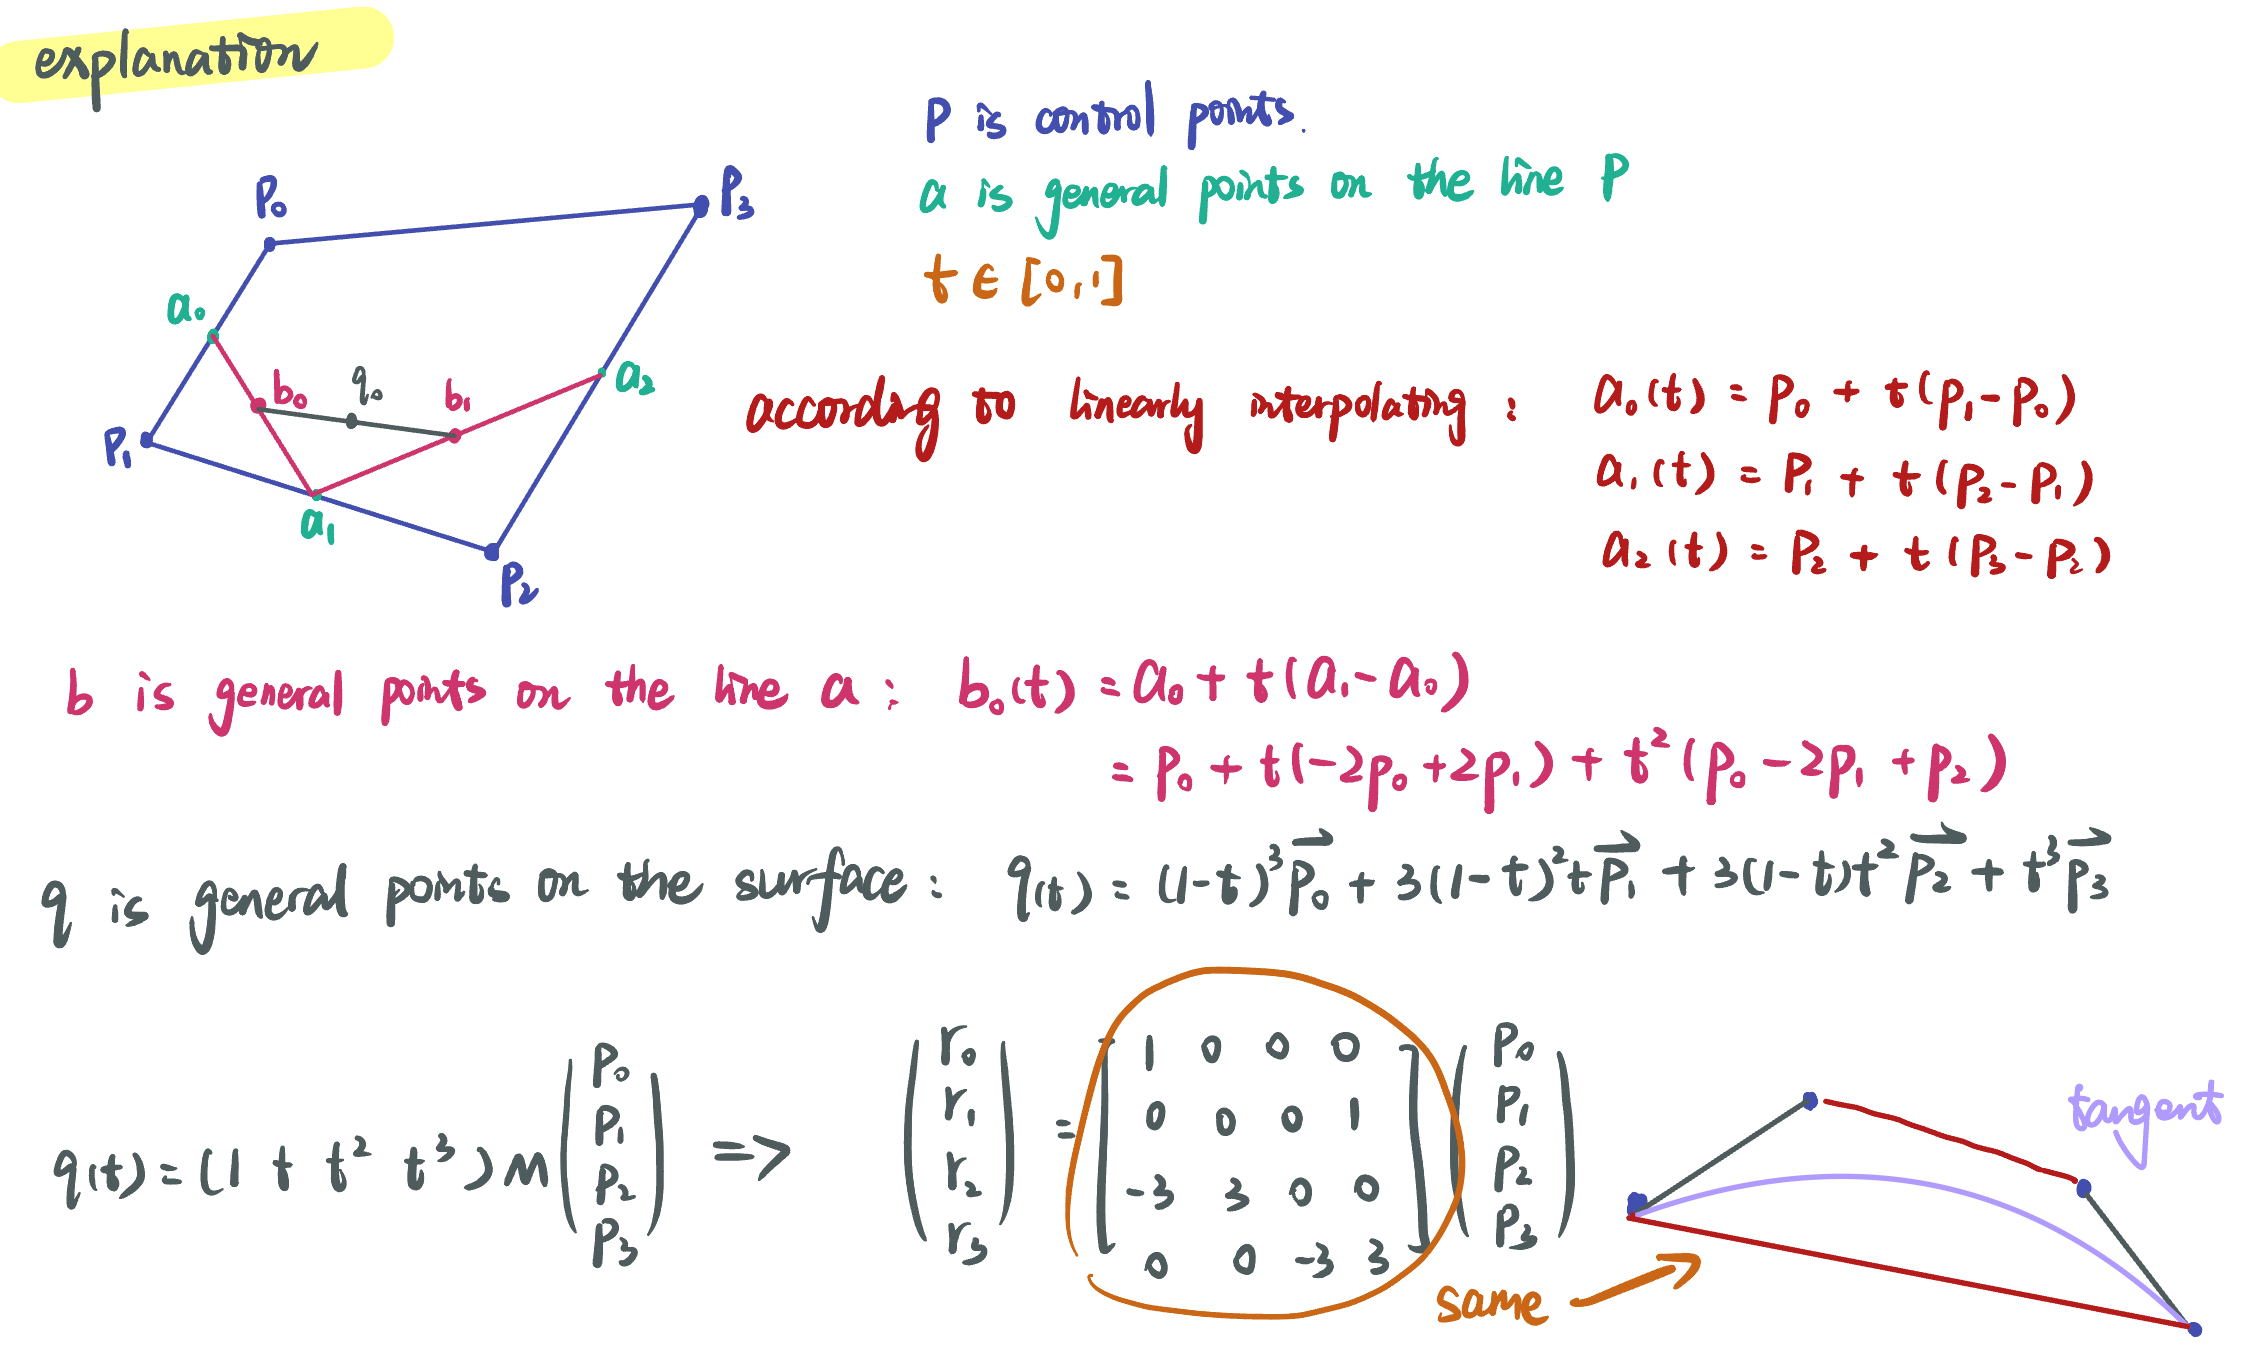 explanation
P is control points.
a is general points on the line P
t ∈ [0,1]
P₀
P₃
a₀
a₂
b₀ q₀ b₁
P₁
a₁
P₂
according to linearly interpolating : a₀(t) = P₀ + t(P₁-P₀)
a₁(t) = P₁ + t(P₂-P₁)
a₂(t) = P₂ + t(P₃-P₂)
b is general points on the line a : b₀(t) = a₀ + t(a₁-a₀)
= P₀ + t(-2P₀+2P₁) + t²(P₀-2P₁+P₂)
q is general points on the surface : q(t) = (1-t)³P₀⃗ + 3(1-t)²tP₁⃗ + 3(1-t)t²P₂⃗ + t³P₃⃗
q(t) = (1 t t² t³) M (P₀ P₁ P₂ P₃) => (r₀ r₁ r₂ r₃) = [1 0 0 0
0 0 0 1
-3 3 0 0
0 0 -3 3] (P₀ P₁ P₂ P₃)
tangent
same